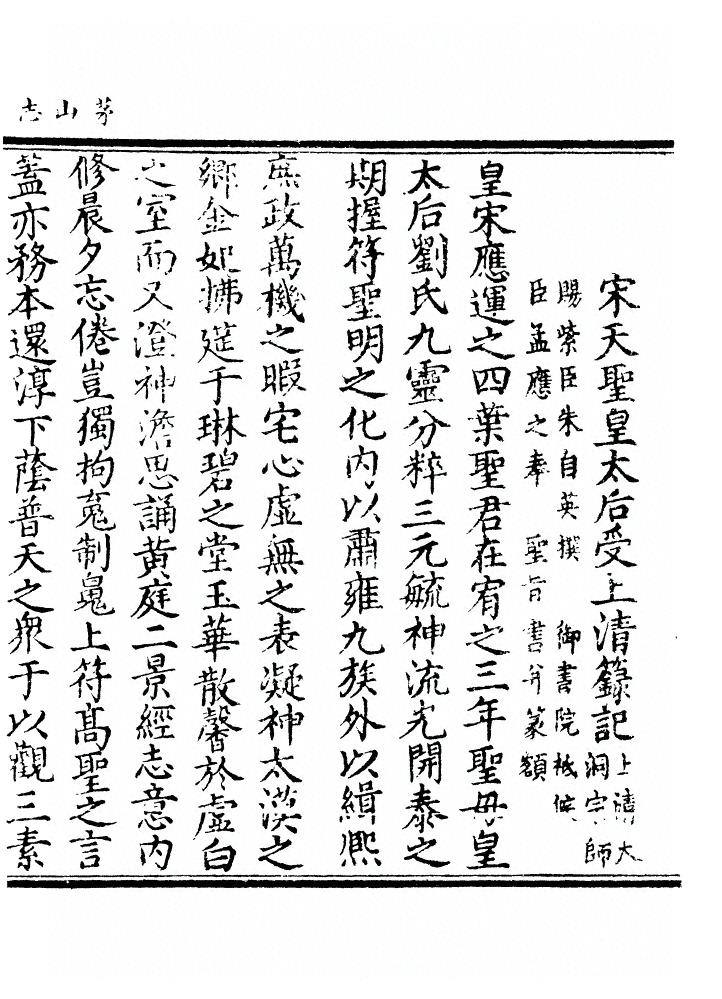 茅山志
宋天聖皇太后受上清籙記上清大洞宗師
賜紫臣朱自英撰　御書院祗候
臣孟應之奉　聖旨書并篆額
皇宋應運之四葉聖君在宥之三年聖母皇
太后劉氏九靈分粹三元毓神流光開泰之
期握符聖明之化內以肅雍九族外以緝熈
庶政萬機之暇宅心虛無之表凝神太漠之
鄉金妃拂筵于琳碧之堂玉華散馨於虛白
之室而又澄神澹思誦黃庭二景經志意內
修晨夕忘倦豈獨拘䰟制魄上符髙聖之言
蓋亦務本還淳下蔭普天之衆于以觀三素